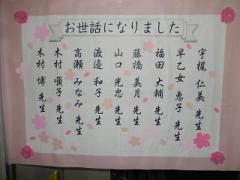 お世話になりました
宇梶 仁美 先生
早乙女 恵子 先生
福田 大輔 先生
藤橋 美月 先生
山口 光忠 先生
渡邉 和子 先生
高瀬 みなみ 先生
木村 順子 先生
木村 博 先生